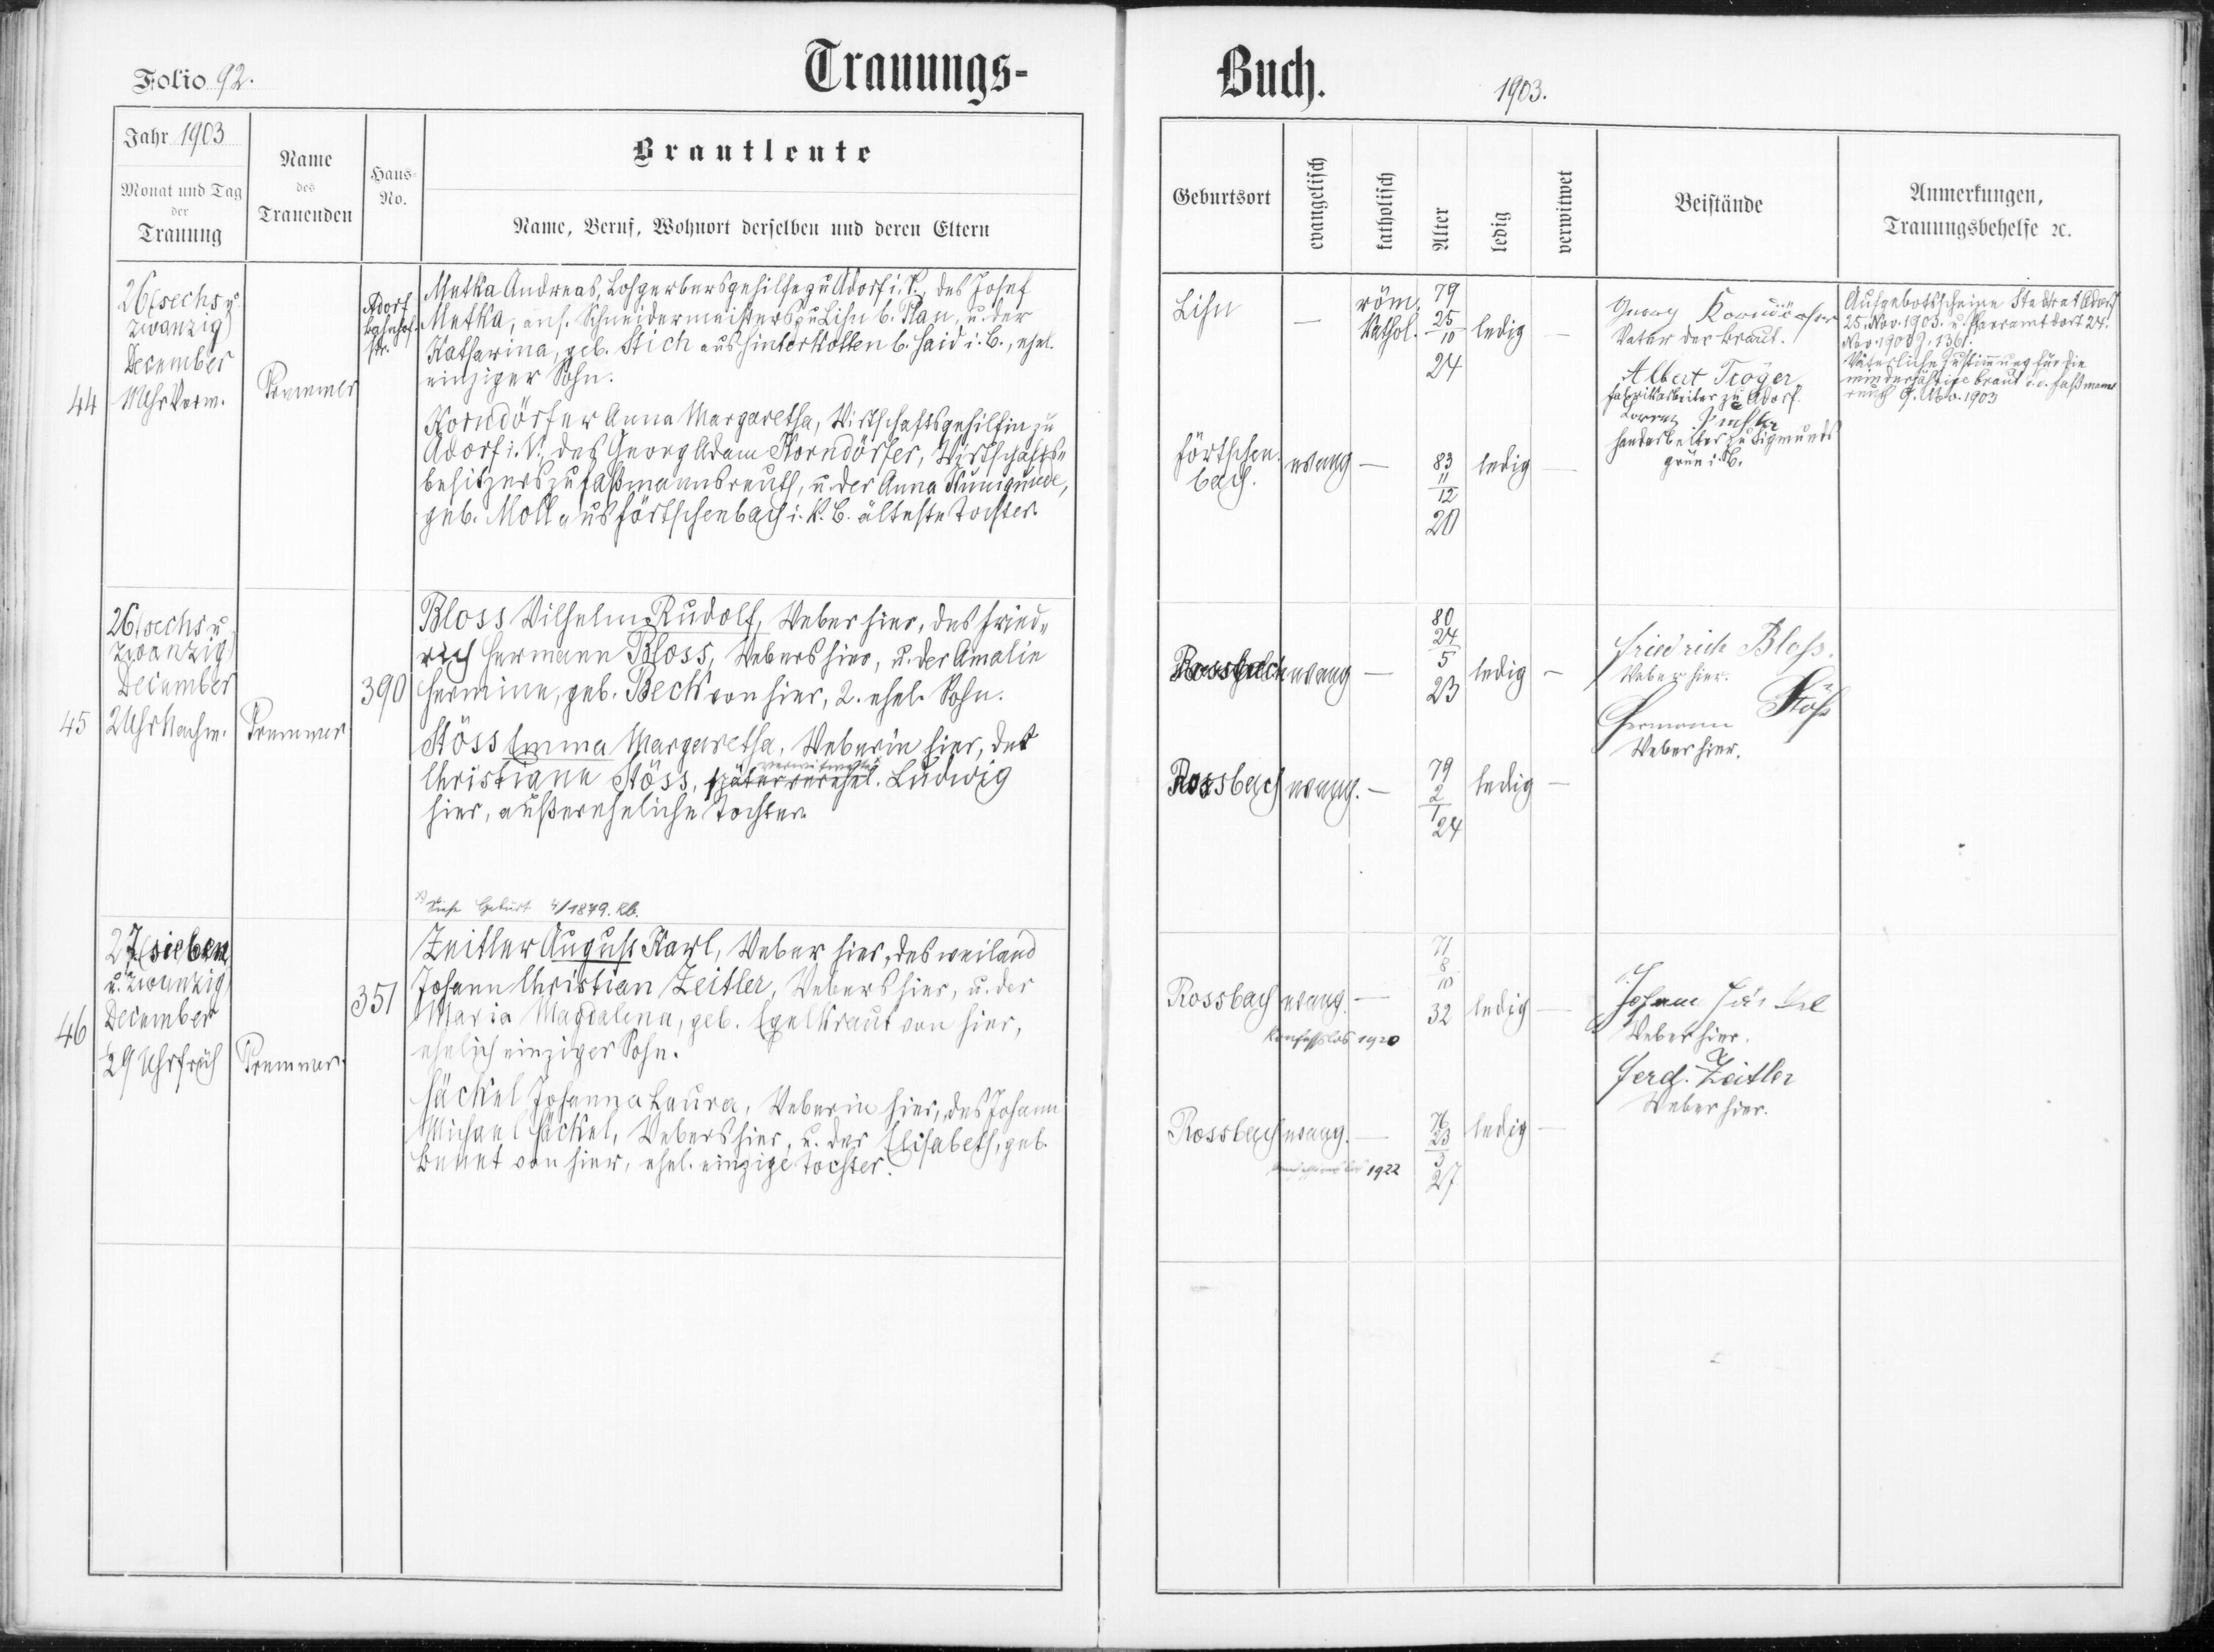 Folio 92.
Trauungs-
Buch.
1903.
Jahr 1903
Monat und Tag
der
Trauung
Name
des
Trauenden
Haus-
No.
Brautleute
Name, Beruf, Wohnort derselben und deren Eltern
Geburtsort
evangelisch
katholisch
Alter
ledig
verwitwet
Beistände
Anmerkungen,
Trauungsbehelfe ꝛc.
44
26 (sechs u.
zwanzig)
December
Uhr Vorm.
Adorf
Bahnhof-
str.
Metka Andreas, Lohgerbersgehilfe zu Adorf i. V., des Josef
Metka, ans. Schneidermeisters zu Lihn b. Plan, u. der
Katharina, geb. Stich aus Hinterkotten b. Haid i. B., ehel.
einziger Sohn.
Korndörfer Anna Margaretha, Wirtschaftsgehilfin zu
Adorf i. V., des Georg Adam Korndörfer, Wirtschafts-
besitzers zu Faßmannsreuth, u. der Anna Kunigunde,
geb. Moll aus Förtschenbach i. B. älteste Tochter.
Lihn
—
röm.
kathol.
79
25
10
24
ledig
—
Förtschen-
bach.
evang
—
83
11
12
20
ledig
—
Georg Korndörfer
Vater der Braut.
Albert Tröger
Fabrikarbeiter zu Adorf.
Lorenz
Handarbeiter zu Sigmunds
grün i. B.
Aufgebotsscheine Stadtrat Adorf
25. Nov. 1903. u. Pfarramt dort 24.
Nov. 1903 J. 1361.
Väterliche Zustimmung für die
minderjährige Braut d. d. Faßmanns
reuth 9. Nov. 1903
45
26 (sechs u
zwanzig)
December
2 Uhr Nachm.
390
Bloss Wilhelm Rudolf, Weber hier, des Fried-
rich Hermann Bloss, Webers hier, u. der Amalie
Hermine, geb. Beck von hier, 2. ehel. Sohn.
Stöss Emma Margaretha, Weberin hier, der
verwitwete
Christiane Stöss, später verehel. Ludwig
hier, außereheliche Tochter.
Siehe Geburt 4/1879. Rb.
Rossbach
evang
—
80
24
5
23
ledig
—
Rossbach
evang.
—
79
2
1
24
ledig
—
Friedrich Bloß.
Weber hier.
Hermann Stöß
Weber hier.
46
27 (sieben
u. zwanzig)
December
Uhr früh
351
Zeitler August Karl, Weber hier, des weiland
Johann Christian Zeitler, Webers hier, u. der
Maria Magdalena, geb. Egelkraut von hier,
ehelich einziger Sohn.
Häckel Johanna Laura, Weberin hier, des Johann
Michael Häckel, Webers hier, u. der Elisabeth, geb.
von hier, ehel. einzige Tochter.
Rossbach
evang.
—
Konfesslos 1920
71
8
10
32
ledig
—
Rossbach
evang.
—
1922
76
23
3
27
ledig
—
Johann
Weber hier.
Ferd. Zeitler
Weber hier.